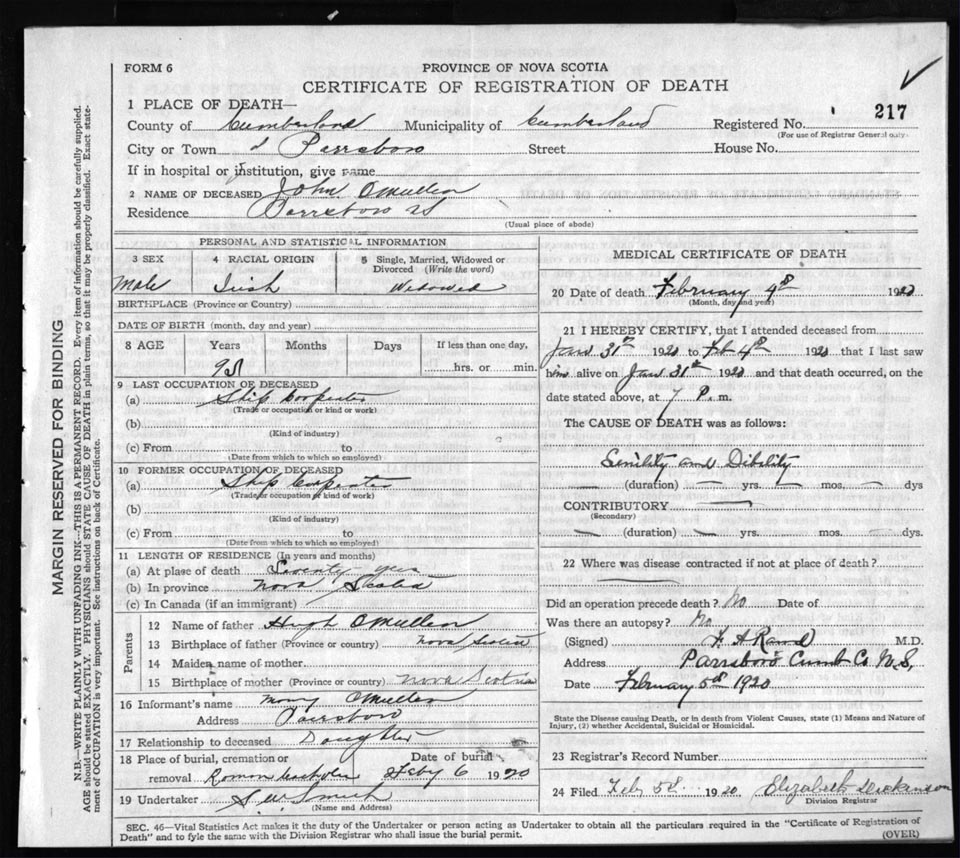 FORM 6
PROVINCE OF NOVA SCOTIA
CERTIFICATE OF REGISTRATION OF DEATH
1 PLACE OF DEATH—
County of Cumberland Municipality of Cumberland Registered No. 217
(For use of Registrar General only)
City or Town of Parrsboro Street House No.
If in hospital or institution, give name
2 NAME OF DECEASED John OMullen
Residence Parrsboro NS
(Usual place of abode)
PERSONAL AND STATISTICAL INFORMATION
3 SEX 4 RACIAL ORIGIN 5 Single, Married, Widowed or Divorced (Write the word)
Male Irish Widowed
BIRTHPLACE (Province or Country)
DATE OF BIRTH (month, day and year)
8 AGE Years Months Days If less than one day,
hrs. or min.
9 LAST OCCUPATION OF DECEASED
(a) Ship Carpenter
(Trade or occupation or kind or work)
(b)
(Kind of industry)
(c) From to
(Date from which to which so employed)
10 FORMER OCCUPATION OF DECEASED
(a) Ship Carpenter
(Trade or occupation or kind of work)
(b)
(Kind of industry)
(c) From to
(Date from which to which so employed)
11 LENGTH OF RESIDENCE (In years and months)
(a) At plase of death Seventy years
(b) In province Nova Scotia
(c) In Canada (if an immigrant)
Parents
12 Name of father Hugh OMullen
13 Birthplace of father (Province or country) Nova Scotia
14 Maiden name of mother
15 Birthplace of mother (Province or country) Nova Scotia
16 Informant's name Mary OMullen
Address Parrsboro
17 Relationship to deceased Daughter
18 Place of burial, cremation or removal Roman Catholic Date of burial Feby 6 1920
19 Undertaker
(Name and Address)
MEDICAL CERTIFICATE OF DEATH
20 Date of death February 4th 1920
(Month, day and year)
21 I HEREBY CERTIFY, that I attended deceased from
Jan 31st 1920 to Feb 4th 1920 that I last saw
him alive on Jan 31st 1920 and that death occurred, on the
date stated above, at 7 P.m.
The CAUSE OF DEATH was as follows:
Senility and Dibelity
(duration) yrs. mos. dys
CONTRIBUTORY
(Secondary)
(duration) yrs. mos. dys.
22 Where was disease contracted if not at place of death?
Did an operation precede death? No Date of
Was there an autopsy? No
(Signed) Rand M.D.
Address Parrsboro Cumb Co N.S.
Date February 5th 1920
State the Disease causing Death, or in death from Violent Causes, state (1) Means and Nature of
Injury, (2) whether Accidental, Suicidal or Homicidal.
23 Registrar's Record Number
24 Filed Feb 5th 1920 Elizabeth Dickinson
Division Registrar
SEC. 46—Vital Statistics Act makes it the duty of the Undertaker or person acting as Undertaker to obtain all the particulars required in the "Certificate of Registration of
Death" and to fyle the same with the Division Registrar who shall issue the burial permit.
(OVER)
MARGIN RESERVED FOR BINDING
N.B.—WRITE PLAINLY WITH UNFADING INK—THIS IS A PERMANENT RECORD. Every item of information should be carefully supplied.
AGE should be stated EXACTLY. PHYSICIANS should STATE CAUSE OF DEATH in plain terms, so that it may be properly classified. Exact state-
ment of OCCUPATION is very important. See instructions on back of Certificate.